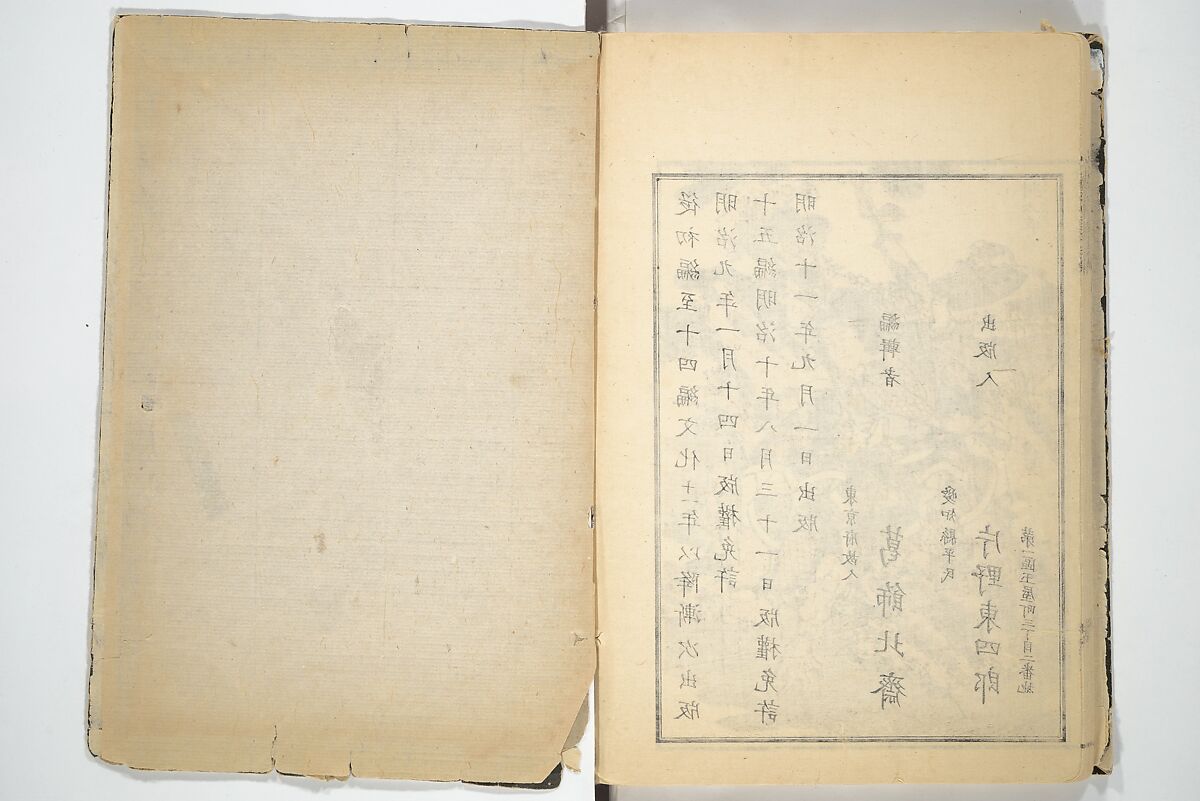 後初編至十四編文化十一年以降漸次出版
明治九年一月十四日版權免許
十五編明治十年八月三十一日版權免許
明治十一年九月一日出版
東京府故人
編輯者 葛飾北齋
愛知縣平民
出版人 片野東四郎
第一區玉屋町三丁目二番地